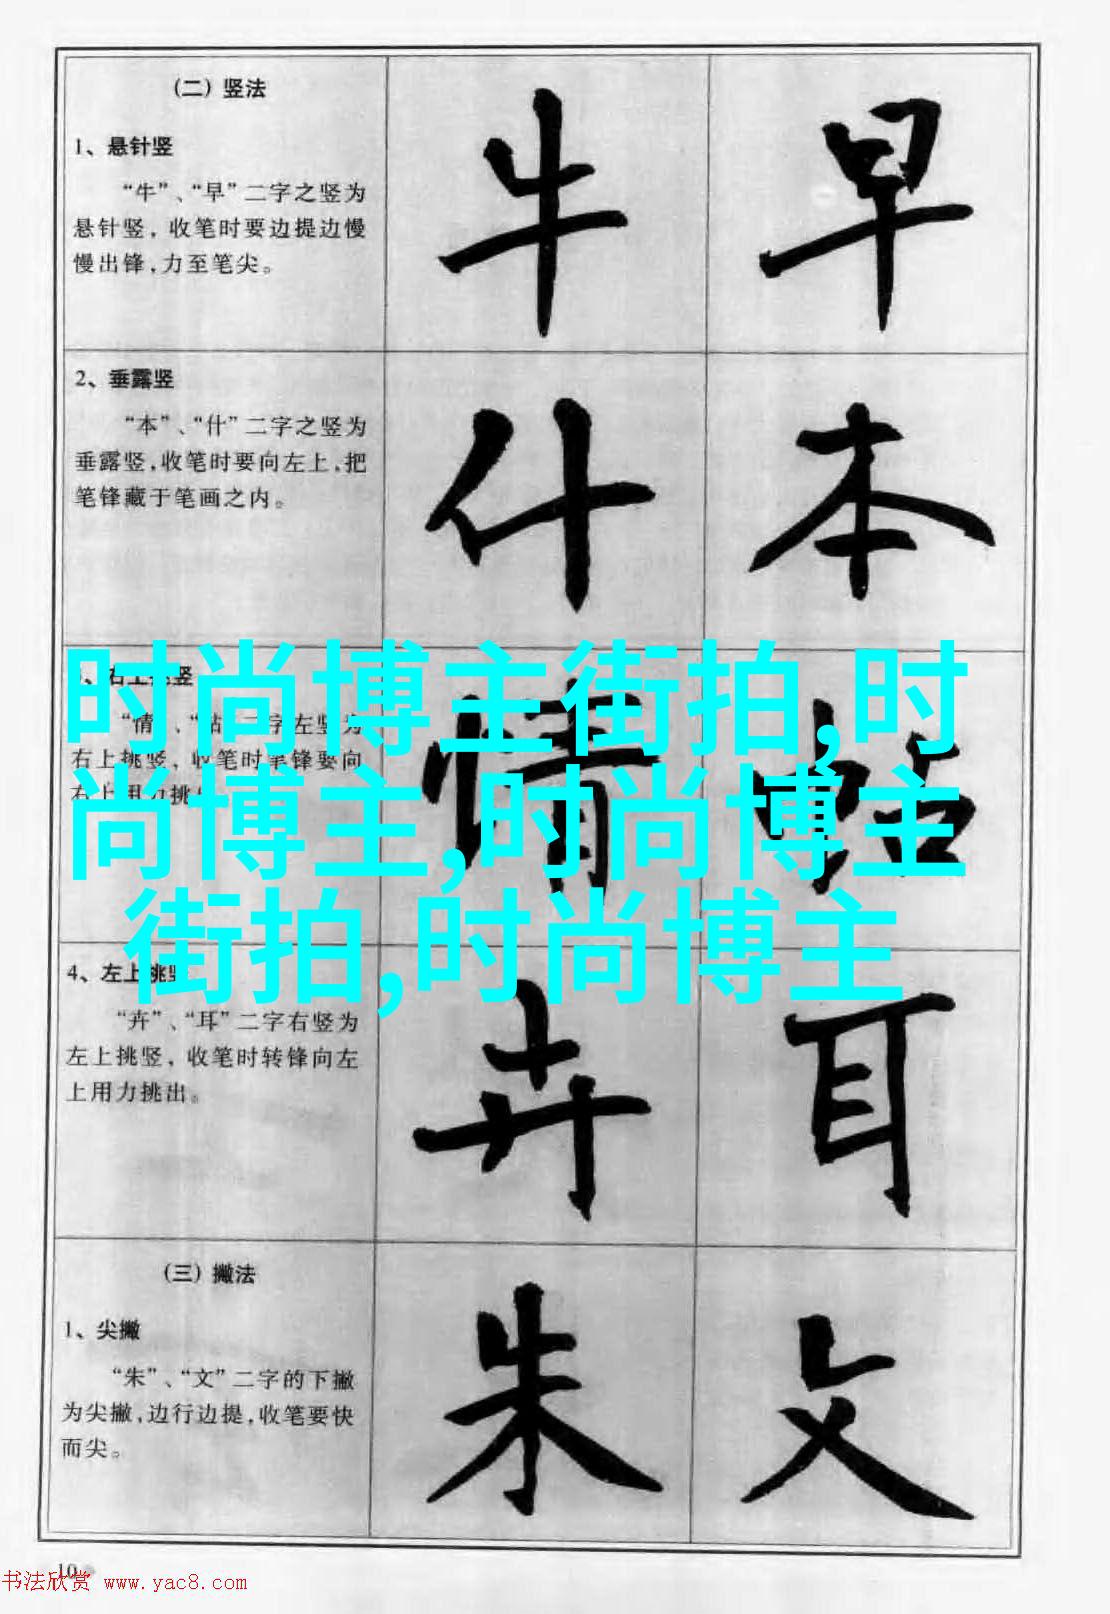 （二）竖法
牛
早
1、悬针竖
“牛”、“早”二字之竖为
悬针竖，收笔时要边提边慢
慢出锋，力至笔尖。
2、垂露竖
什
本
“本”、“什”二字之竖为
垂露竖，收笔时要向左上，把
笔锋藏于笔画之内。
时尚博主街拍,时
尚博主,时尚博主
街拍,时尚博主
3、右上挑竖
情
帖
“情”、“帖”二字左竖为
右上挑竖，收笔时笔锋要向
右上用力挑
4、左上挑竖
卉
耳
“卉”、“耳”二字右竖为
左上挑竖，收笔时转锋向左
上用力挑出。
（三）撇法
1、尖撇
朱
文
“朱”、“文”二字的下撇
为尖撇，边行边提，收笔要快
而尖。
10
书法欣赏 www.yac8.com